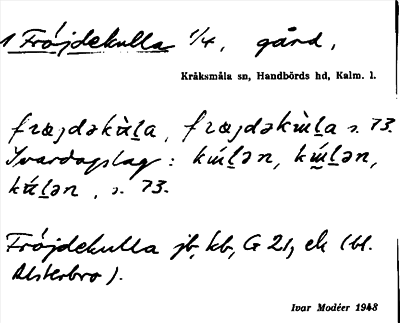 1 Fröjdekulla 1/4, gård,
Kråksmåla sn, Handbörds hd, Kalm. l.
fræjdəkùl̲a, fræjdəkùl̲a s. 73.
Ivardagslag: kúl̲ən, kúl̲ən,
kúl̲ən, s. 73.
Fröjdekulla jb, kb, G 21, ek (bl.
Alsterbro).
Ivar Modéer 1948